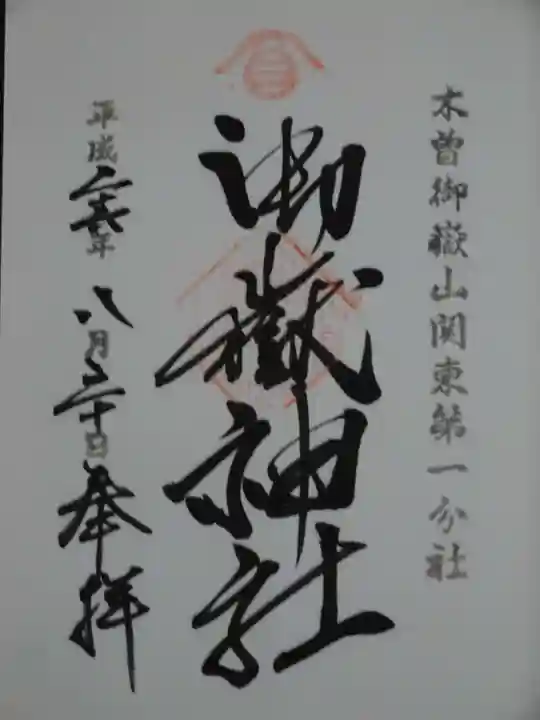 木曽御嶽山関東第一分社
御嶽神社
平成二十五年八月三十日奉拝